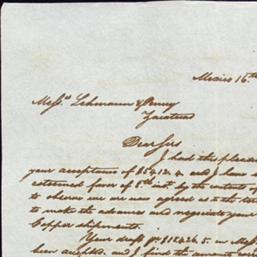 Mexico 16th
Messrs Lehmann & Penny
Zacatecas
Dear Sirs
I had this pleasure
your acceptance of $ and I have
esteemed favor of 8th inst. by the contents of
to observe we are agreed as to the
to make the advances and negociate your
Copper shipments.
Your draft pr $12426.5. on Mess
been accepted. and I find the amount